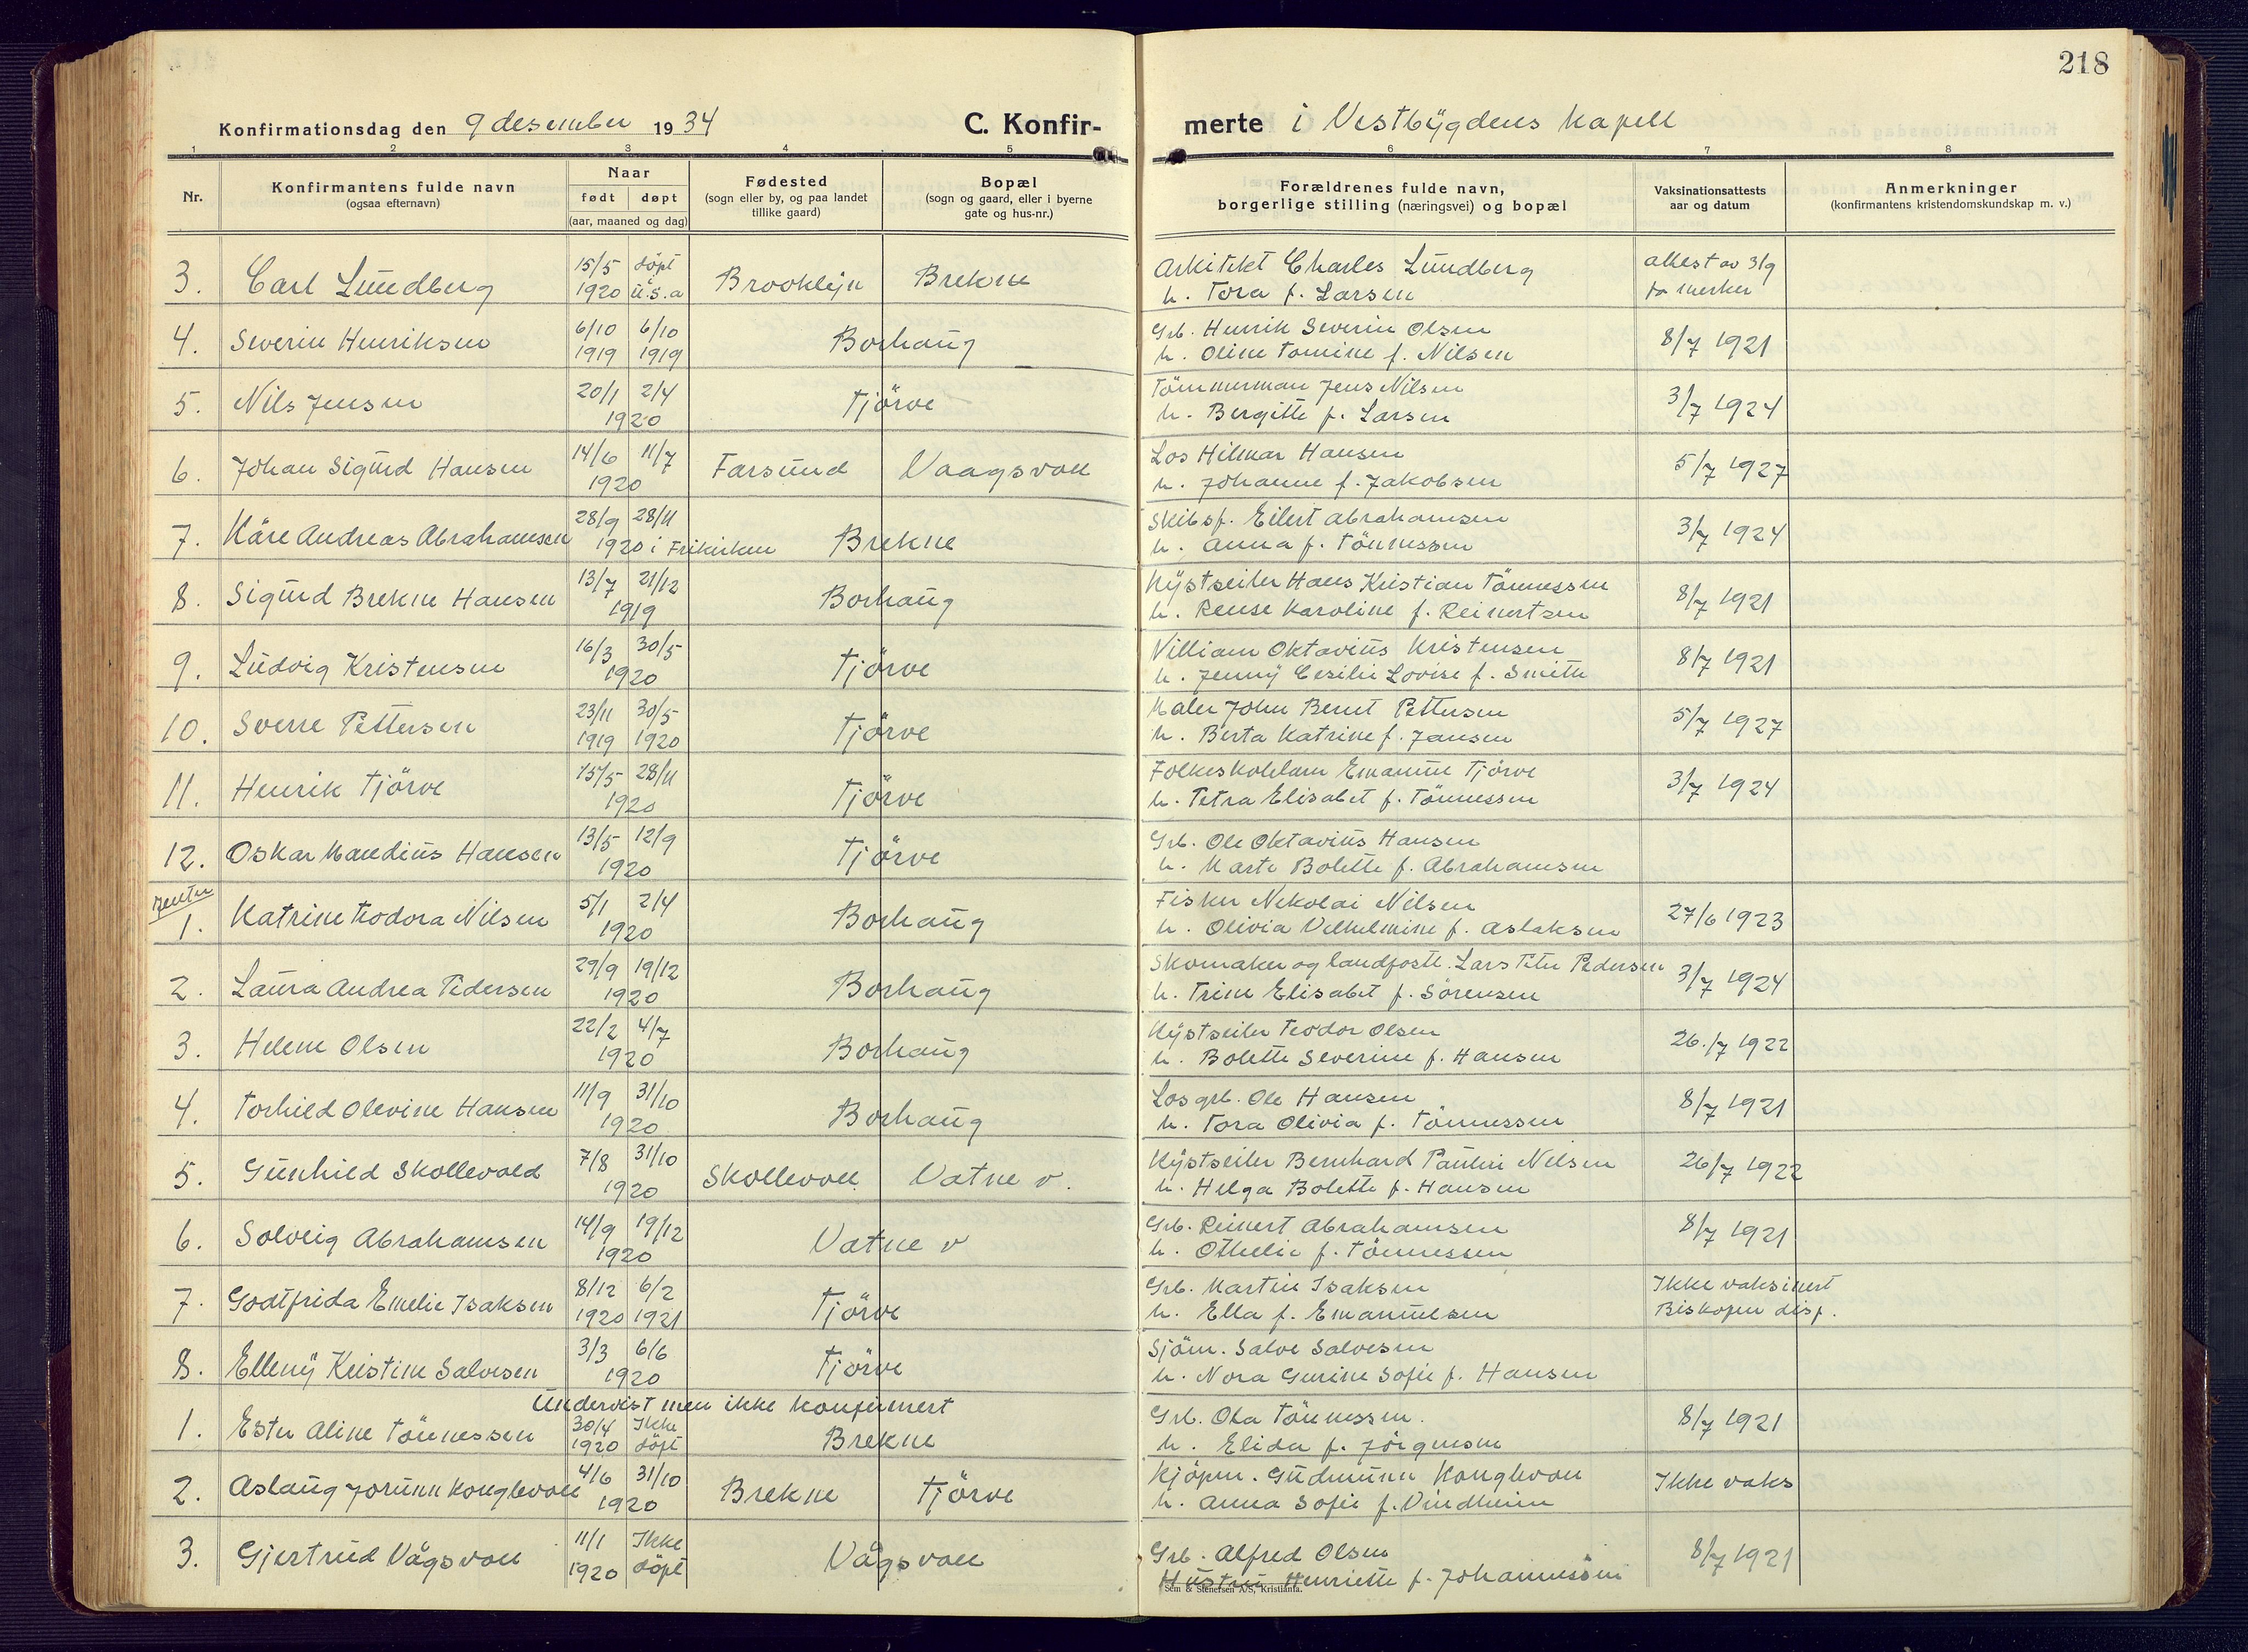 218
Konfirmationsdag den 9 desember 1934 C. Konfir- merte i Vestbygdens Kapell
1 2 3 4 5 6 7 8
Nr. Konfirmantens fulde navn (ogsaa efternavn) Naar født døpt (aar, maaned og dag) Fødested (sogn eller by, og paa landet tillike gaard) Bopæl (sogn og gaard, eller i byerne gate og hus-nr.) Forældrenes fulde navn, borgerlige stilling (næringsvei) og bopæl Vaksinationsattests aar og datum Anmerkninger (konfirmantens kristendomskundskap m. v.)
3. Carl Lundberg 15/5 1920 döpt U.S.a Brooklijn Brekne Arkitekt Charles Lundberg
h. Tora f. Larsen attest av 3/9 to merker
4. Severin Henriksen 6/10 1919 6/10 1919 Borhaug Grb. Henrik Severin Olsen
h. Oline Tomine f. Nilsen 8/7 1921
5. Nils Jensen 20/1 2/4 1920 Tjörve Tömmerman Jens Nilsen
h. Bergitte f. Larsen 3/7 1924
6. Johan Sigurd Hansen 14/6 11/7 1920 Farsund Vaagsvoll Los Hilmar Hansen
h. Johanne f. Jakobsen 5/7 1927
7. Kåre Andreas Abrahamsen 28/9 28/11 1920 i Frikirken Brekne Skibsf. Eilert Abrahamsen
h. Anna f. Tönnessen 3/7 1924
8. Sigurd Brekne Hansen 13/7 21/12 1919 Borhaug Kystseiler Hans Kristian Tönnessen
h. Rense Karoline f. Reinertsen 8/7 1921
9. Ludvig Kristensen 16/3 30/5 1920 Tjörve Villiam Oktavius Kristensen
h. Jenny Cesilie Lovise f. Smith 8/7 1921
10. Sverre Pettersen 23/11 1919 30/5 1920 Tjörve Maler John Bernt Pettersen
h. Berta Katrine f. Jansen 5/7 1927
11. Henrik Tjörve 15/5 28/11 1920 Tjörve Folkeskolelærer Emanuel Tjörve
h. Petra Elisabet f. Tönnessen 3/7 1924
12. Oskar Mandius Hansen 13/5 12/9 1920 Tjörve Grb. Ole Oktavius Hansen
h. Marte Bolette f. Abrahamsen
Jenter
1. Katrine Teodora Nilsen 5/1 2/4 1920 Borhaug Fisker Nikolai Nilsen
h. Olivia Vilhelmine f. Aslaksen 27/6 1923
2. Laura Andrea Pedersen 29/9 19/12 1920 Borhaug Skomaker og landpostb. Lars Peter Pedersen
h. Trine Elisabet f. Sörensen 3/7 1924
3. Helene Olsen 22/2 4/7 1920 Borhaug Kystseiler Teodor Olsen
h. Bolette Severine f. Hansen 26./7 1922
4. Torhild Olevine Hansen 11/9 31/10 1920 Borhaug Los grb. Ole Hansen
h. Tora Olivia f. Tönnessen 8/7 1921
5. Gunhild Skollevold 7/8 31/10 1920 Skollevoll Vatne v. Kystseiler Bernhard Paulin Nilsen
h. Helga Bolette f. Hansen 26/7 1922
6. Solveig Abrahamsen 14/9 19/12 1920 Vatne v Grb. Reinert Abrahamsen
h. Othelie f. Tönnessen 8/7 1921
7. Godtfrida Emelie Isaksen 8/12 1920 6/2 1921 Tjörve Grb. Martin Isaksen
h. Ella f. Emanuelsen Ikke vaksinert Biskopen disp.
8. Elleny Kristine Salvesen 3/3 6/6 1920 Tjörve Sjöm. Salve Salvesen
h. Nora Gurine Sofie f. Hansen
Undervist men ikke konfirmert
1. Ester Aline Tönnessen 30/4 1920 Ikke döpt Brekne Grb. Ola Tönnessen.
h. Elida f. Jörgensen 8/7 1921
2. Aslaug Jorunn Konglevoll 4/6 31/10 1920 Brekne Tjörve Kjöpm. Gudmunn Konglevoll
h. Anna Sofie f. Vindheim Ikke vaks
3. Gjertrud Vågsvoll 11/1 1920 Ikke döpt Vågsvoll Grb. Alfred Olsen
Hustru Henriette f. Johannessen 8/7 1921
Sem & Stenersen A/S, Kristiania.